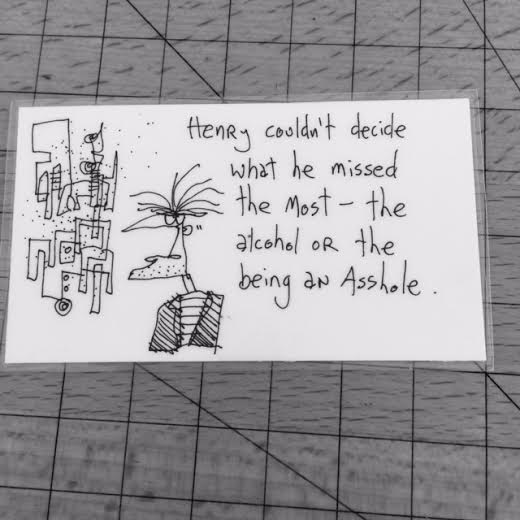 Henry couldn't decide
what he missed
the most – the
alcohol or the
being an Asshole.